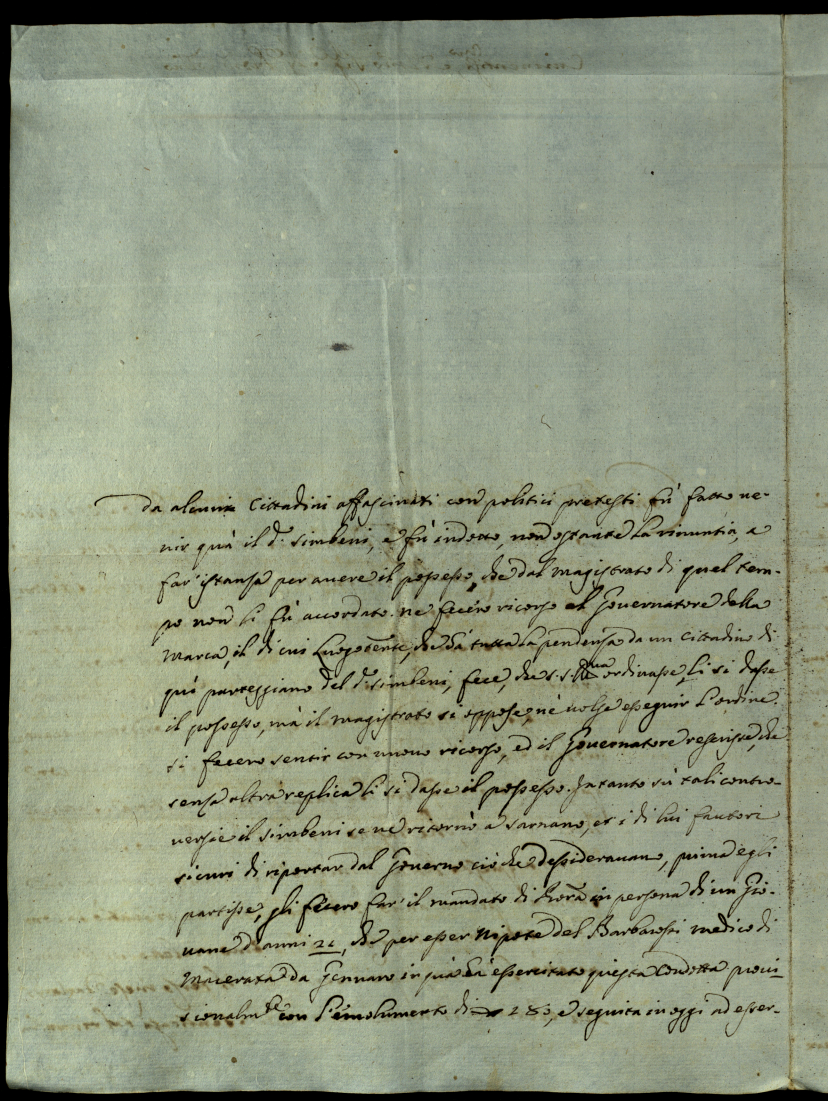 Da alcuni Cittadini affascinati con politici pretesti fù fatto ve-
nir quà il d.º Simbeni, e fù indotto, non ostante la rinuntia, a
far' istanza per avere il possesso, che dal Magistrato di quel tem-
po non li fù accordato. Ne fecero ricorso al Governatore della
Marca, il di cui Luogotente, che hà tutta la pendenza da un Cittadino di
quì parteggiano del d.º Simbeni, fece, che S. S. Ill.ma ordinasse, li si dasse
il possesso, mà il Magistrato si oppose, nè volse esseguir l'ordine.
Si fecero sentir con nuovo ricorso, ed il Governatore rescrisse, che
senza altra replica li si dasse il possesso. Intanto sù tali contro-
versie il Simbeni se nè ritornò a Sarnano, et i di lui fautori
sicuri di riportar dal Governo ciò che desideravano, prima egli
partisse, gli fecero far' il mandato di Procra in persona di un Gio-
vane d'anni che per esser Nipote del Barbarossi medico di
Macerata da Gennaro in quà hà essercitato questa Condotta provi-
sionalm.te con l'emolumento di 280, e seguita in oggi ad esser-